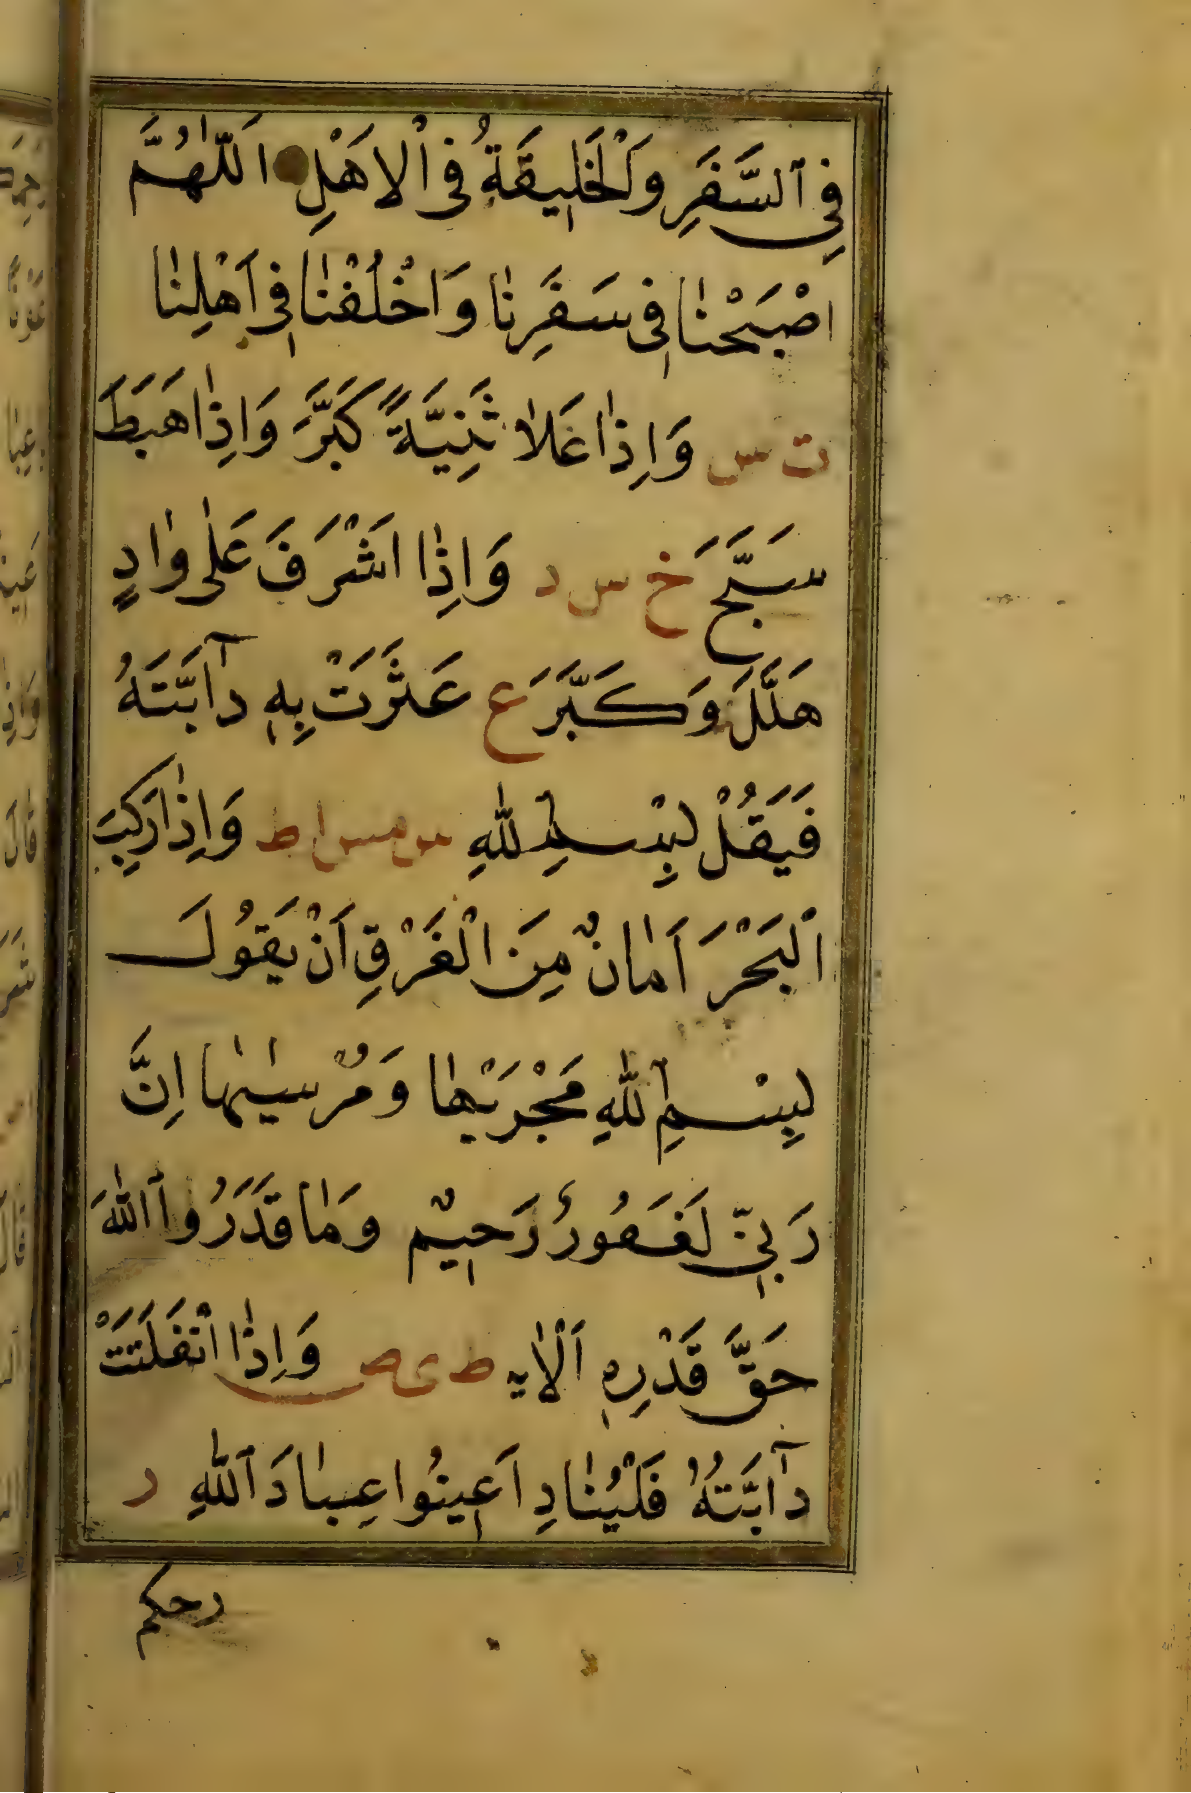 فِي ٱلسَّفَرِ وَلْخَلِيفَةُ فِى الْاَهْلِ اَللّٰهُمَّ
اصْبَحْنٰا فِى سَفَرِنٰا وَاخْلُفْنٰا فِى اَهْلِنٰا
ت س وَاِذٰا عَلاٰ ثَنِيَّةً كَبَّرَ وَاِذٰا هَبَطَ
سَبَّحَ خ س د وَاِذٰا اَشْرَفَ عَلٰى وٰادٍ
هَلَّلَ وَكَبَّرَ ع عَثَرَتْ بِهِ دٰٓابَّتَهُ
فَيَقُلْ بِسْمِ اللّٰهِ س مس ا ط وَاِذٰا رَكِبَ
الْبَحْرَ اَمٰانٌ مِنَ الْغَرْقِ اَنْ يَقُولَ
بِسْمِ اللّٰهِ مَجْرَيٰهٰا وَمُرْسٰيهٰا اِنَّ
رَبّى لَغَفُورٌ رَحِيمٌ وَمٰا قَدَرُوا اللّٰهَ
حَقَّ قَدْرِهِ اَلْاٰيه ط ى ص وَاِذٰا انْفَلَتَتْ
دٰٓابَّتُهُ فَلْيُنٰادِ اَعِينُوا عِبٰادَ اللّٰهِ ر
رحمكم